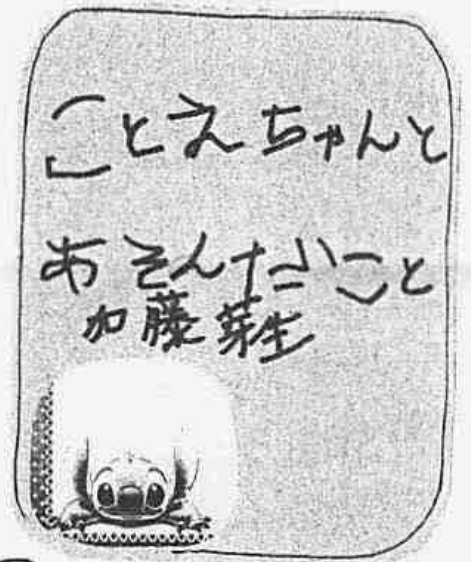 ことえちゃんと
あそんだこと
加藤芽生